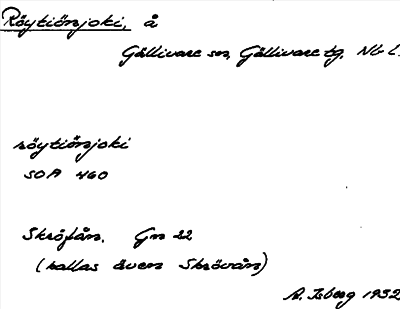 Röytiönjoki, å
Gällivare sn, Gällivare tg. Nb L.
röytiönjoki
SOA 460
Skröfån. Gn 22
(kallas även Skrövån)
A. Isberg 1932